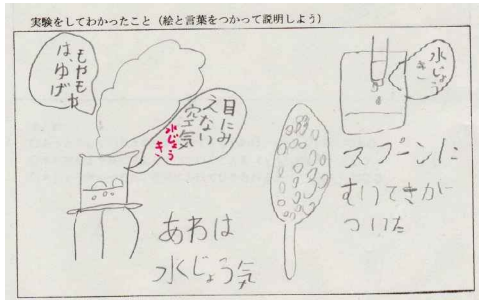 実験をしてわかったこと（絵と言葉をつかって説明しよう）
もやもや
は、ゆげ
目にみ
えない
空気
水じょう
き
水じょう
き
あわは
水じょう気
スプーンに
すいてきが
ついた